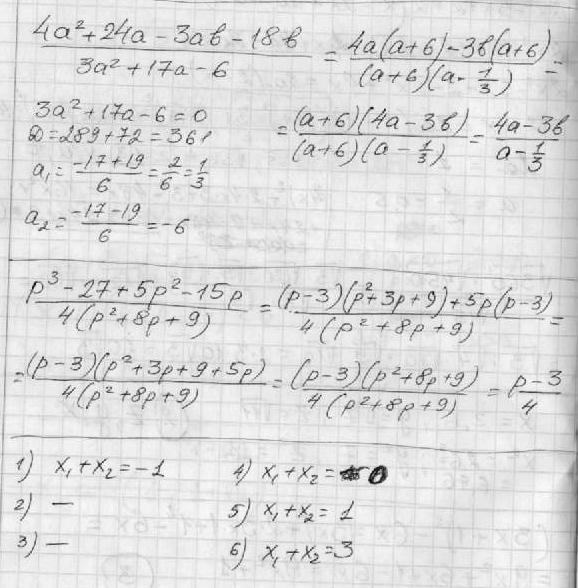 (4a²+24a-3aв-18в)/(3a²+17a-6) = (4a(a+6)-3в(a+6))/((a+6)(a-1/3)) =
3a²+17a-6=0
D=289+72=361
a₁=(-17+19)/6=2/6=1/3
a₂=(-17-19)/6=-6
=((a+6)(4a-3в))/((a+6)(a-1/3))=(4a-3в)/(a-1/3)
(p³-27+5p²-15p)/(4(p²+8p+9)) = ((p-3)(p²+3p+9)+5p(p-3))/(4(p²+8p+9)) =
=((p-3)(p²+3p+9+5p))/(4(p²+8p+9))=((p-3)(p²+8p+9))/(4(p²+8p+9))=(p-3)/4
1) x₁+x₂=-1
2) —
3) —
4) x₁+x₂=0
5) x₁+x₂=1
6) x₁+x₂=3